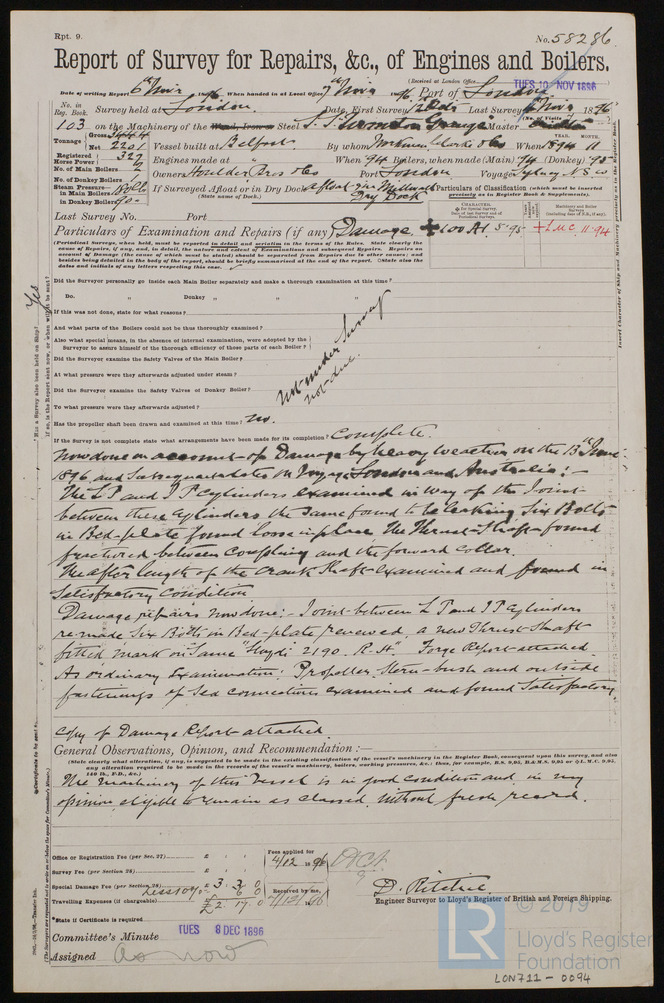 Rpt. 9.
No. 58286
Report of Survey for Repairs, &c., of Engines and Boilers.
(Received at London Office TUES 10 NOV 1896
Date of writing Report 6th Novr 1896 When handed in at Local Office 7 Novr 1896 Port of London
No. in Reg. Book. Survey held at London Date, First Survey Last Survey Novr 1896
(No. of Visits
103 on the Machinery of the Wood, Iron or Steel S.S. Thornton Grange Master
Tonnage Gross
Net 2201
Vessel built at Belfast By whom Workman Clark & Co When 1894 11
YEAR. MONTH.
Registered Horse Power 327
Engines made at " When 94 Boilers, when made (Main) 94 (Donkey) 93
No. of Main Boilers 2
Owners Houlder Bros & Co Port London Voyage Sydney N.S.W
No. of Donkey Boilers
Steam Pressure in Main Boilers
in Donkey Boilers
If Surveyed Afloat or in Dry Dock afloat & in Millwall Dry Dock
(State name of Dock.)
Particulars of Classification (which must be inserted precisely as in Register Book & Supplements).
Last Survey No. Port
Particulars of Examination and Repairs (if any) Damage
+100 A1 5.95 +LMC 11.94
(Periodical Surveys, when held, must be reported in detail and seriatim in the terms of the Rules. State clearly the cause of Repairs, if any, and, in detail, the nature and extent of Examinations and subsequent Repairs. Repairs on account of Damage (the cause of which must be stated) should be separated from Repairs due to other causes; and besides being detailed in the body of the report, should be briefly summarised at the end of the report. State also the dates and initials of any letters respecting this case.
Did the Surveyor personally go inside each Main Boiler separately and make a thorough examination at this time?
Do. " Donkey " " " "
If this was not done, state for what reasons?
And what parts of the Boilers could not be thus thoroughly examined?
Also what special means, in the absence of internal examination, were adopted by the Surveyor to assure himself of the thorough efficiency of those parts of each Boiler?
Did the Surveyor examine the Safety Valves of the Main Boiler?
At what pressure were they afterwards adjusted under steam?
Did the Surveyor examine the Safety Valves of Donkey Boiler?
To what pressure were they afterwards adjusted?
not under Survey
not due.
Has the propeller shaft been drawn and examined at this time? no.
If the Survey is not complete state what arrangements have been made for its completion? Complete.
Now done on account of Damage by heavy weather on the 13th June
1896 and subsequent dates on Voyage London and Australia:-
The L P and I P cylinders examined in way of the Joint
between these cylinders the same found to be leaking Six Bolts
in Bed-plate found loose in place, the Thrust Shaft found
fractured between Coupling and the forward collar.
The after length of the Crank Shaft examined and found in
Satisfactory Condition
Damage repairs now done:- Joint between L P and I P cylinders
re-made Six Bolts in Bed-plate renewed, a new Thrust Shaft
fitted mark on same "Lloyds 2190. R.H" Forge Report attached.
As ordinary Examination: Propeller, Stern-bush and outside
fastenings of Sea connections examined and found Satisfactory
Copy of Damage Report attached.
General Observations, Opinion, and Recommendation:—
(State clearly what alteration, if any, is suggested to be made in the existing classification of the vessel's machinery in the Register Book, consequent upon this survey, and also any alteration required to be made in the records of the vessel's machinery, boilers, working pressures, &c.: thus, for example, B.S. 9,95, B.&M.S. 9,95 or L.M.C. 9,95, 140 lb., F.D., &c.)
The machinery of this Vessel is in good condition and in my
opinion eligible to remain as classed, without fresh record.
Office or Registration Fee (per Sec. 27) £ : :
Survey Fee (per Section 28) £ : :
Special Damage Fee (per Section 28) £ 3 : 3 : 0
Less 10% 6 0
Travelling Expenses (if chargeable) £ 2 17 0
Fees applied for 4/12 1896
Received by me,
D. Ritchie
Engineer Surveyor to Lloyd's Register of British and Foreign Shipping.
*State if Certificate is required
Committee's Minute TUES 8 DEC 1896
Assigned as now
© 2019
LR
Lloyd's Register
Foundation
LON711-0094